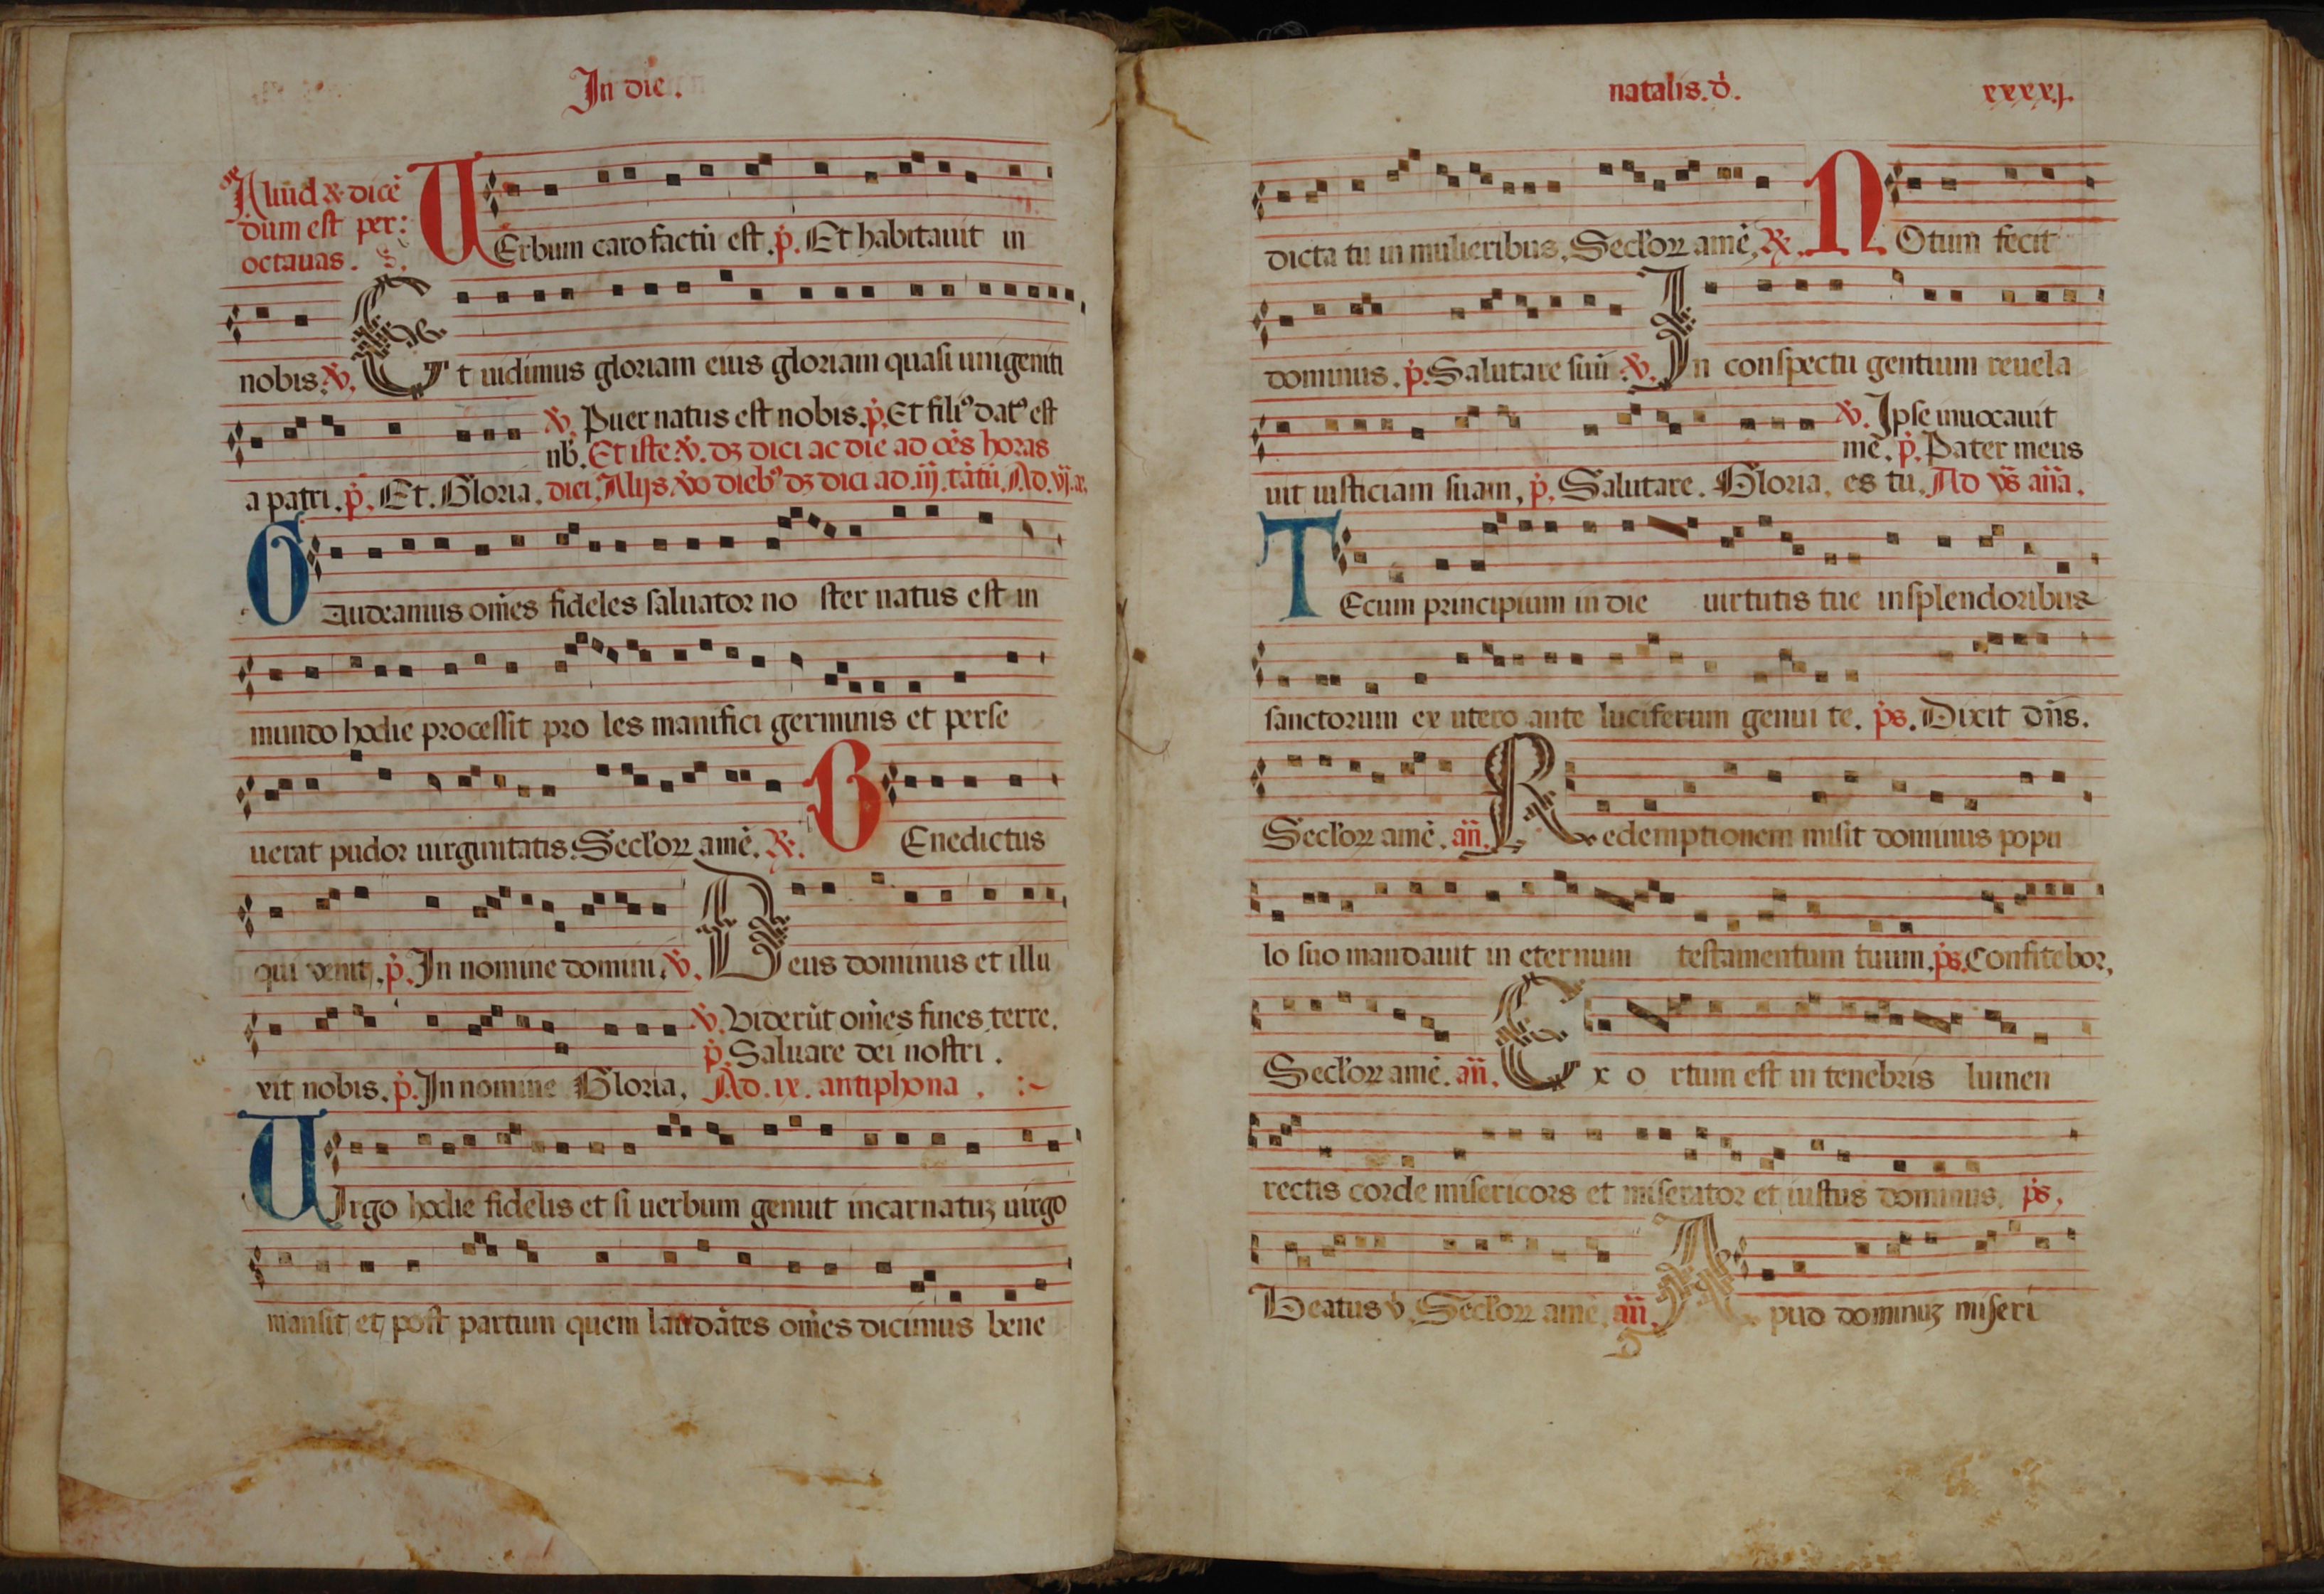 In die.
Aliud & dicē
dum est per:
octauas.
VErbum caro factū est. p̄. Et habitauit in
nobis. ℣. Et uidimus gloriam eius gloriam quasi unigeniti
℣. Puer natus est nobis. p̄. Et filiꝰ datꝰ est
nb̄. Et iste ℣. dꝫ dici ac die ad oēs horas
a patri. p̄. Et. Gloria. diei. Alijs. ℣o diebꝰ dꝫ dici ad .iij. tātū. Ad .vj. a.
Gaudeamus om̄es fideles saluator noster natus est in
mundo hodie processit pro les manifici germinis et perse
uerat pudor uirginitatis. Secl'oꝝ amē. ℟. BEnedictus
qui venit. p̄. In nomine domini. ℣. Deus dominus et illu
℣. Viderūt om̄es fines terre.
p̄. Saluare dei nostri.
xit nobis. p̄. In nomine Gloria. Ad .ix. antiphona.
VIrgo hodie fidelis et si uerbum genuit incarnatuꝫ uirgo
mansit et post partum quem laudātes om̄es dicimus bene
natalis. d̄. xxxxj.
dicta tu in mulieribus. Secl'oꝝ amē. ℟. NOtum fecit
dominus. p̄. Salutare suū. ℣. In conspectu gentium reuela
℣. Ipse inuocauit
mē. p̄. Pater meus
uit iusticiam suam. p̄. Salutare. Gloria. es tu. Ad vs̄ an̄a.
TEcum principium in die uirtutis tue insplendoribus
sanctorum ex utero ante luciferum genui te. p̄s. Dixit dn̄s.
Secl'oꝝ amē. an̄. Redemptionem misit dominus popu
lo suo mandauit in eternum testamentum tuum. p̄s. Confitebor.
Secl'oꝝ amē. an̄. Exortum est in tenebris lumen
rectis corde misericors et miserator et iustus dominus. p̄s.
Beatus v. Secl'oꝝ amē. an̄. Apud dominuꝫ miseri